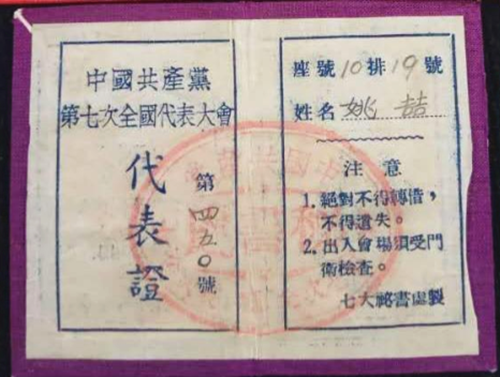 中國共產黨
第七次全國代表大會
代表證
第四五〇號
座號10排19號
姓名 姚喆
注意
1. 絕對不得轉借，
不得遺失。
2. 出入會場須受門
衛檢查。
七大祕書處製